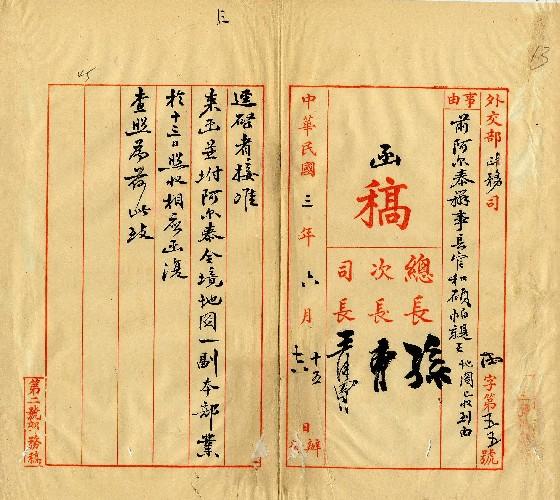 外交部政務司
字第五五號
事由
前阿尔泰辦事長官和碩怕親王地圖已收到由
函
稿
總長 孫
次長 曹
司長
中華民國三年六月十五日辦
逕啓者接准
來函並坿阿尔泰全境地圖一副本部業
於十三日照收相應函復
查照爲荷此致
第二號 務稿
13
45